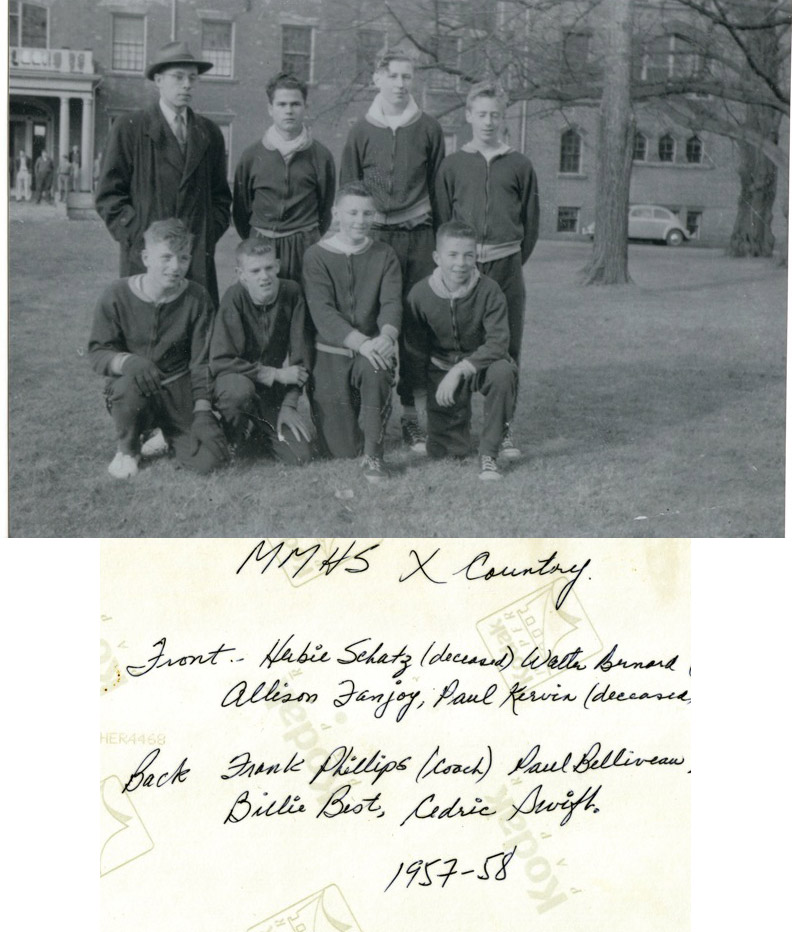 MMHS X Country.
Front - Herbie Schatz (deceased) Walter Bernard (
Allison Fanjoy, Paul Kervin (deceased
HER4468
Back Frank Phillips (coach) Paul Belliveau,
Billie Best, Cedric Swift.
1957-58
Kodak
Kodak
Kodak